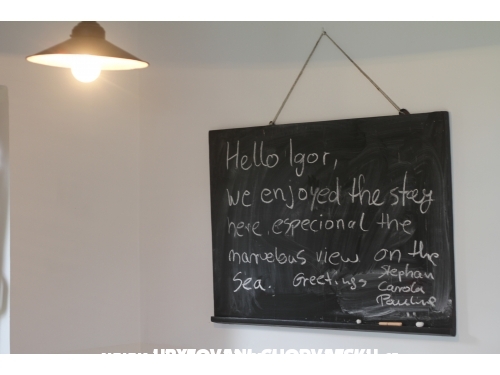 Hello Igor,
we enjoyed the stay
here, especional the
marvelous view on the
Sea. Greetings Stephan
Carola
Pauline